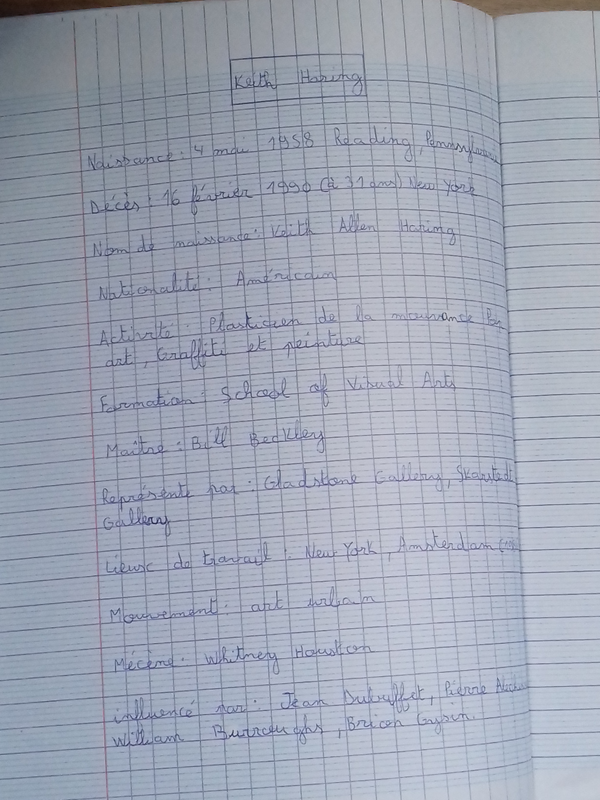 Keith Haring
Naissance : 4 mai 1958 Reading, Pennsylvanie
Décès : 16 février 1990 (à 31 ans) New York
Nom de naissance : Keith Allen Haring
Nationalité : Américain
Activité : Plasticien de la mouvance Pop
art, Graffiti et peinture
Formation : School of Visual Arts
Maître : Bill Beckley
Représenté par : Gladstone Gallery, Skarstedt
Gallery
Lieux de travail : New York, Amsterdam
Mouvement : art urbain
Mécène : Whitney Houston
influencé par : Jean Dubuffet, Pierre
William Burroughs, Brion Gysin.